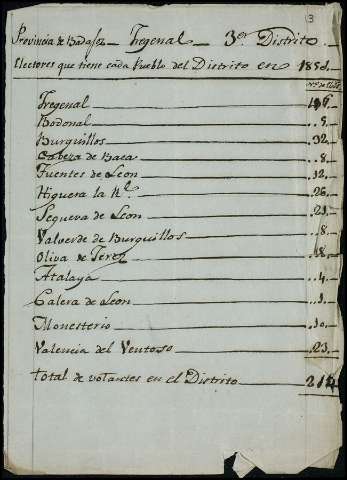 3
Provincia de Badajoz Fregenal 3er Distrito
Electores que tiene cada Pueblo del Distrito en
Fregenal
Bodonal 5
Burguillos 32
Cabeza de Baca 8
Fuentes de Leon 12
Higuera la Rl 26
Segueva de Leon 21
Valverde de Burguillos 8
Oliva de Ferez 18
Atalaya 4
Calera de Leon
Monesterio 10
Valencia del Ventoso 23
Total de votantes en el Distrito